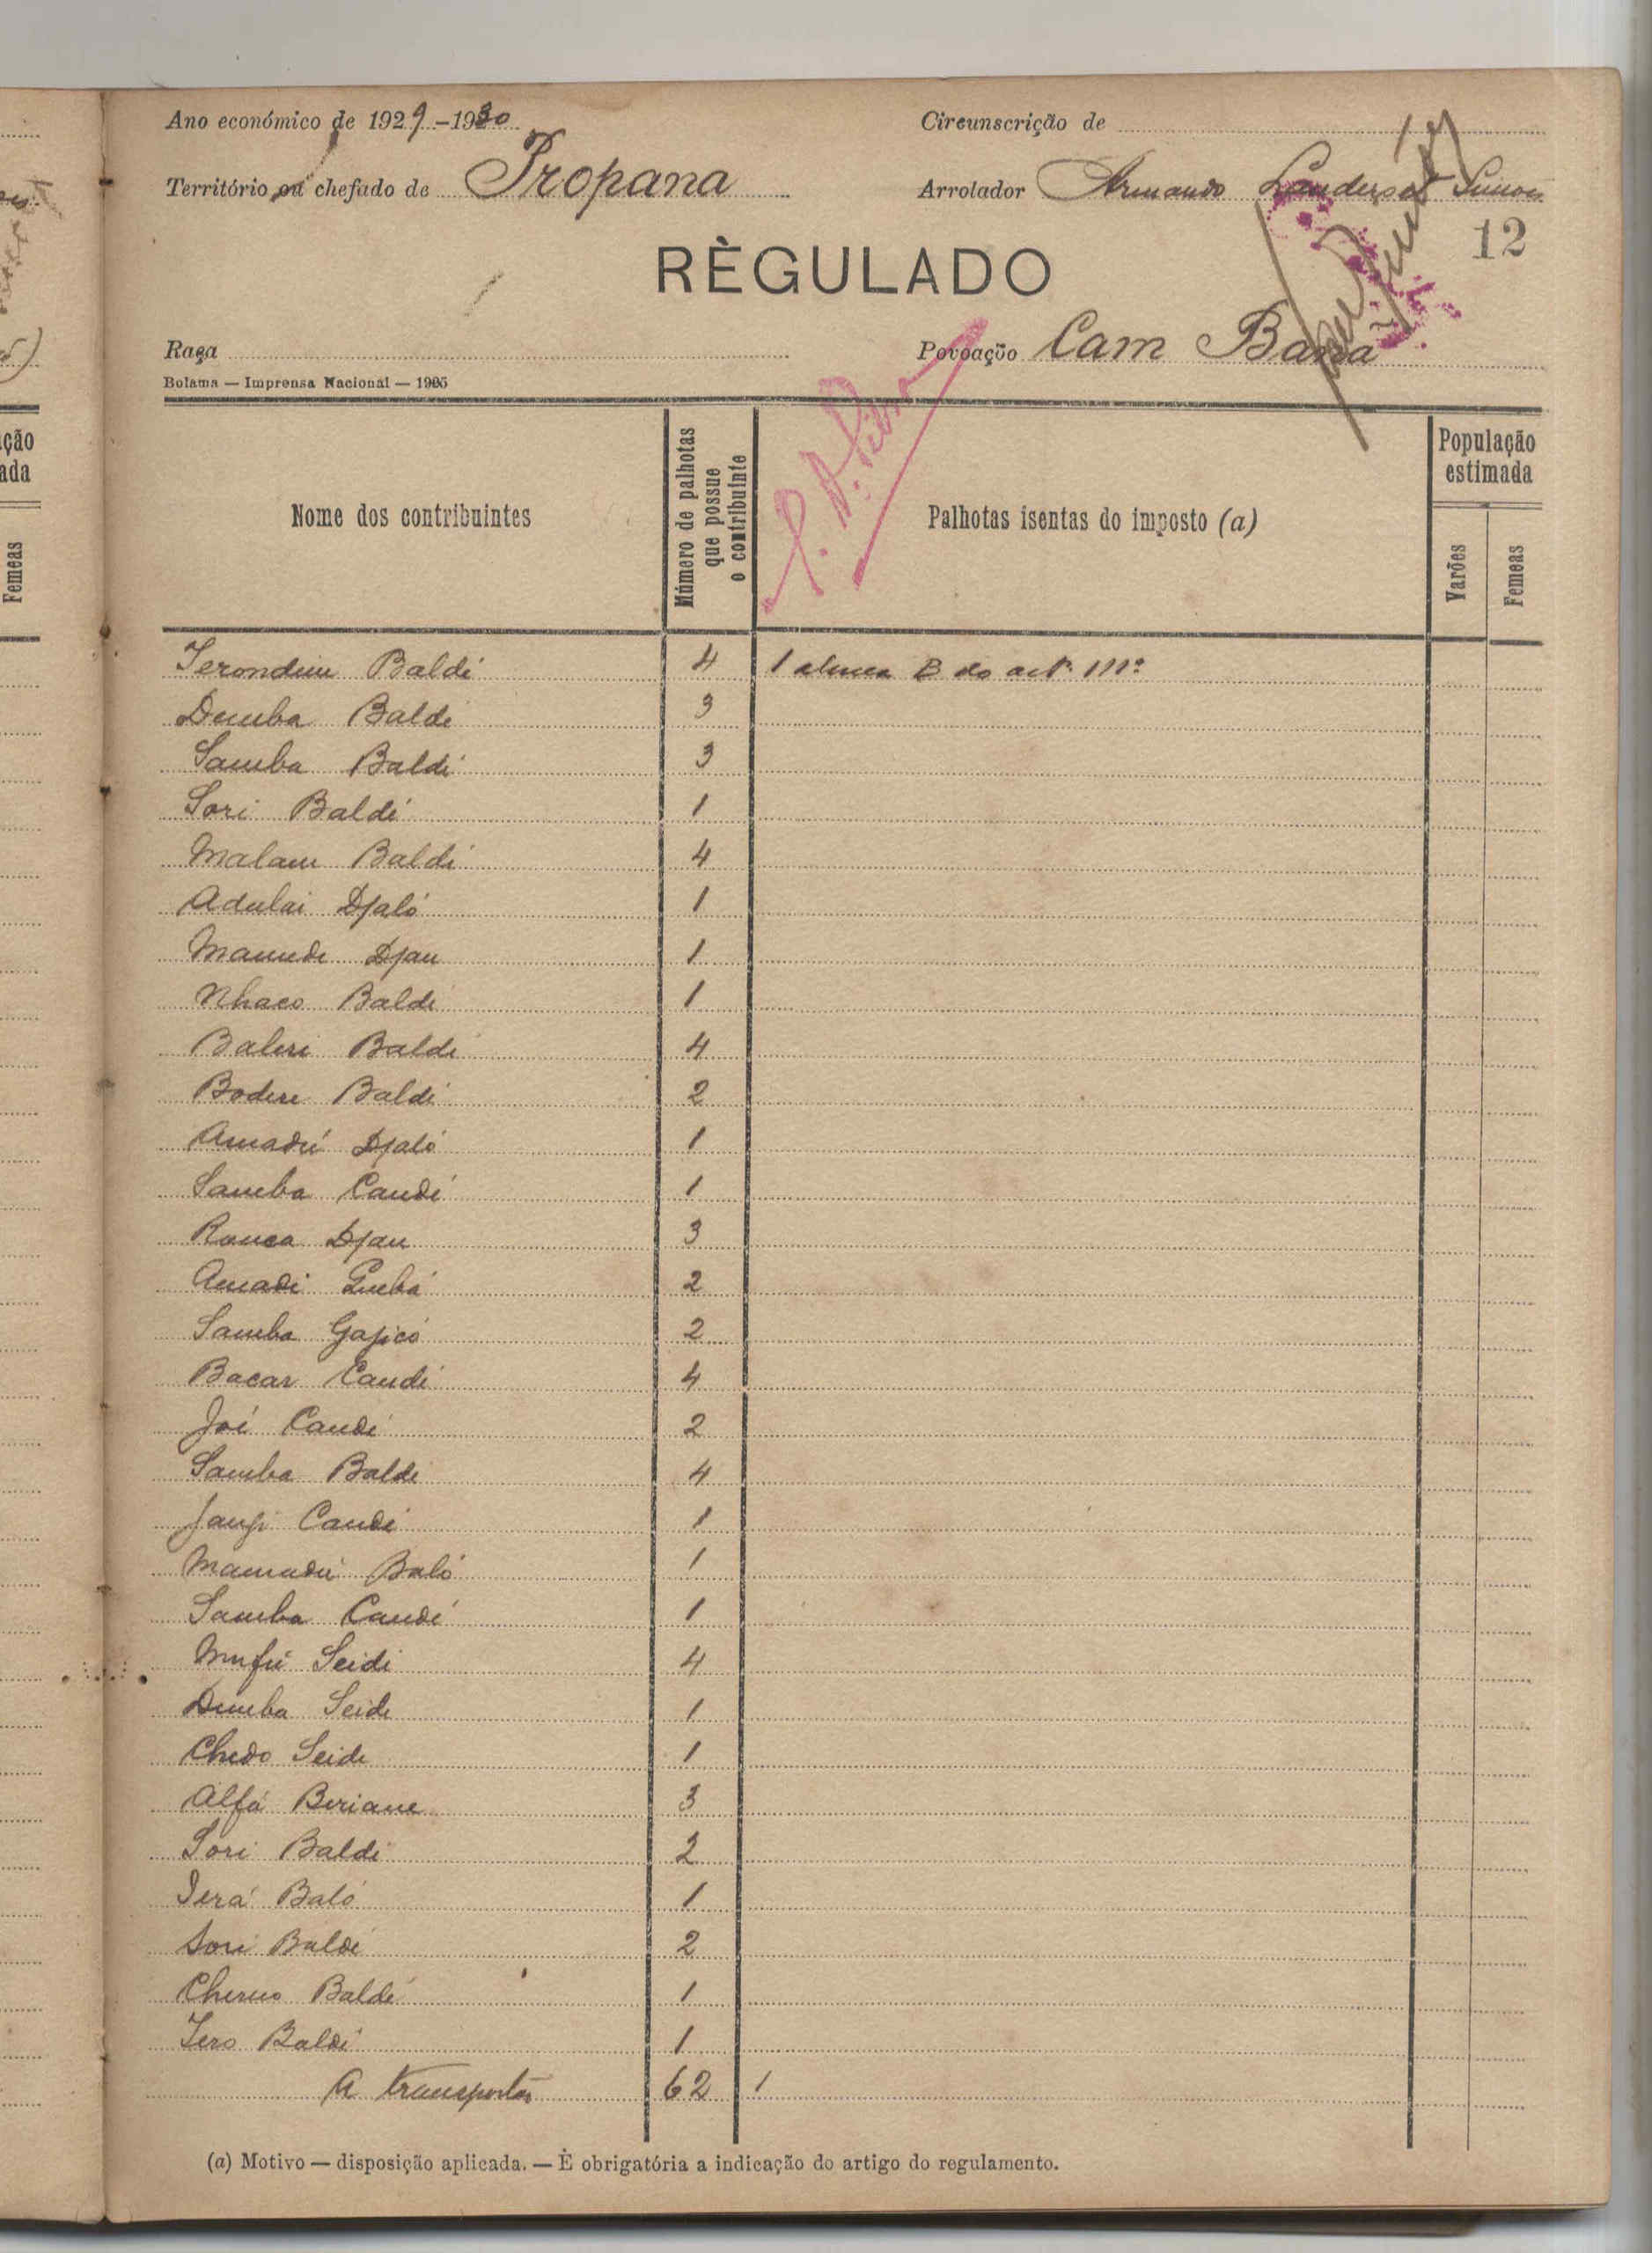 Ano económico de 1929-1930
Circunscrição de
Território ou chefado de Propana
Arrolador Armando Landerset Simões
12
RÈGULADO
Raça
Povoação Cam Banã
Bolama — Imprensa Nacional — 1925
Nome dos contribuintes
Número de palhotas que possue o contribuinte
Palhotas isentas do imposto (a)
População estimada
Varões
Femeas
Baldé 4 1 alinea B do artº 111º
Demba Baldé 3
Samba Baldé 3
Sori Baldé 1
Malam Baldé 4
Adulai Djaló 1
Mamude Djau 1
Nhaco Baldé 1
Baldé 4
Bodere Baldé 2
Amadú Djaló 1
Samba Candé 1
Djau 3
Amadi 2
Samba Gajicó 2
Bacar Candé 4
Joí Candé 2
Samba Baldé 4
Candé 1
Mamadú Baló 1
Samba Candé 1
Mufú Seidi 4
Demba Seide 1
Chedo Seide 1
Alfá 3
Sori Baldé 2
Ierá Baló 1
Sori Baldé 2
Baldé 1
Iero Baldé 1
A transportar 62 1
(a) Motivo — disposição aplicada. — È obrigatória a indicação do artigo do regulamento.
ção
ada
Femeas